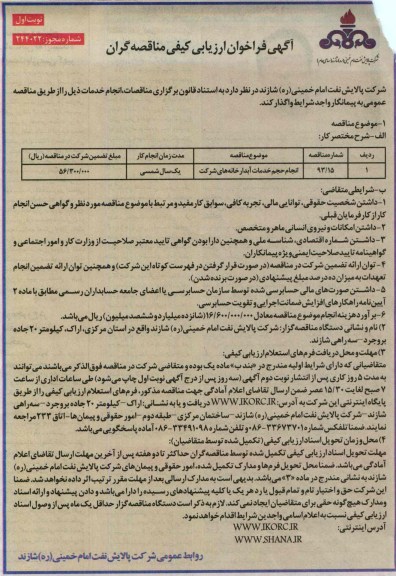 نوبت اول
شماره مجوز: ۲۴۴۰۲۲
آگهی فراخوان ارزیابی کیفی مناقصه گران
شرکت پالایش نفت امام خمینی (ره) شازند در نظر دارد به استناد قانون برگزاری مناقصات، انجام خدمات ذیل را از طریق مناقصه
عمومی به پیمانکار واجد شرایط واگذار کند.
۱- موضوع مناقصه
الف- شرح مختصر کار:
ردیف شماره مناقصه موضوع مناقصه مدت زمان انجام کار مبلغ تضمین شرکت در مناقصه (ریال)
۱ ۹۳/۱۵ انجام حجم خدمات آبدارخانه های شرکت یک سال شمسی ۵۶/۳۰۰/۰۰۰
ب- شرایط متقاضی:
۱- داشتن شخصیت حقوقی، توانایی مالی، تجربه کافی، سوابق کار مفید و مرتبط با موضوع مناقصه مورد نظر و گواهی حسن انجام
کار از کارفرمایان قبلی.
۲- داشتن امکانات و نیروی انسانی ماهر و متخصص.
۳- داشتن شماره اقتصادی، شناسه ملی و همچنین دارا بودن گواهی تایید معتبر صلاحیت از وزارت کار و امور اجتماعی و
گواهینامه تایید صلاحیت ایمنی ویژه پیمانکاران.
۴- توان ارائه تضمین شرکت در مناقصه (در صورت قرار گرفتن در فهرست کوتاه این شرکت) و همچنین توان ارائه تضمین انجام
تعهدات به میزان ده درصد مبلغ پیشنهادی (در صورت برنده شدن).
۵- داشتن صورت های مالی حسابرسی شده توسط سازمان حسابرسی یا اعضای جامعه حسابداران رسمی مطابق با ماده ۲
آیین نامه راهکارهای افزایش ضمانت اجرایی و تقویت حسابرسی.
۶- برآورد هزینه انجام موضوع مناقصه معادل ۱۶/۶۰۰/۰۰۰/۰۰۰ (شانزده میلیارد و ششصد میلیون) ریال می باشد.
۲) نام و نشانی دستگاه مناقصه گزار: شرکت پالایش نفت امام خمینی (ره) شازند واقع در استان مرکزی، اراک، کیلومتر ۲۰ جاده
بروجرد- سه راهی شازند.
۳) مهلت و محل دریافت فرم های استعلام ارزیابی کیفی:
متقاضیانی که دارای شرایط اولیه مندرج در «بند ب» ماده یک بوده و متقاضی شرکت در مناقصه فوق الذکر می باشند می توانند
به مدت ۵ روز کاری پس از انتشار نوبت دوم آگهی (سه روز پس از درج آگهی نوبت اول چاپ می شود) طی ساعات اداری از ساعت
۷ صبح لغایت ۱۵/۳۰ عصر ضمن ارسال تقاضای اعلام آمادگی جهت مناقصه مذکور، فرم های استعلام ارزیابی کیفی را از طریق
پایگاه اینترنتی این شرکت به آدرس: WWW.IKORC.IR دریافت و یا به نشانی: اراک- کیلومتر ۲۰ جاده بروجرد- سه راهی
شازند- شرکت پالایش نفت امام خمینی (ره) شازند- ساختمان مرکزی- طبقه دوم- امور حقوقی و پیمان ها- اتاق ۲۳۳ مراجعه
نمایند. ضمنا تلفکس شماره ۳۳۶۷۳۷۰۱-۰۸۶ و تلفن شماره ۳۳۴۹۱۰۹۸-۰۸۶ آماده پاسخگویی می باشد.
۴) محل و زمان تحویل اسناد ارزیابی کیفی (تکمیل شده توسط متقاضیان):
مهلت تحویل اسناد ارزیابی کیفی تکمیل شده توسط مناقصه گران حداکثر تا دو هفته پس از آخرین مهلت ارسال تقاضای اعلام
آمادگی می باشد. ضمنا محل تحویل فرم ها و مدارک تکمیل شده، امور حقوقی و پیمان های شرکت پالایش نفت امام خمینی (ره)
شازند به نشانی مندرج در ماده «۳» می باشد. بدیهی است به مدارک ارسالی بعد از مهلت مقرر ترتیب اثر داده نخواهد شد. ضمنا
این شرکت حق و اختیار تام و تمام قبول یا رد هر یک یا کلیه پیشنهادهای رسیده را دارا می باشد و دادن پیشنهاد و ارائه اسناد
و مدارک هیچ گونه حقی برای متقاضیان ایجاد نمی کند. لازم به ذکر است دستگاه مناقصه گزار حداقل یک ماه پس از وصول اسناد
ارزیابی کیفی نسبت به اعلام اسامی واجدین شرایط اقدام خواهد نمود.
آدرس اینترنتی: WWW.IKORC.IR
WWW.SHANA.IR
روابط عمومی شرکت پالایش نفت امام خمینی (ره) شازند